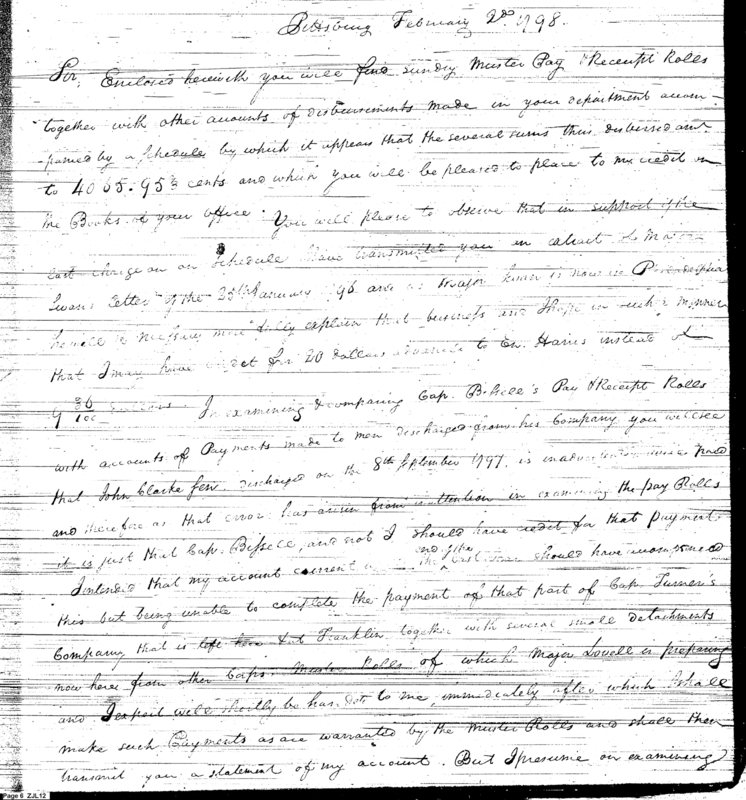 Pittsburg February 2nd 1798.
Sir, Enclosed herewith you will find sundry Muster Pay & Receipt Rolls
together with other accounts of disbursements made in your department accom-
-panied by a Schedule by which it appears that the several sums thus disbursed amt
to 4065.95 cents and which you will be pleased to place to my credit on
the Books of your office. You will please to observe that in support of the
last charge on Schedule I have transmitted you an extract Major
Swans Letter of the 25th January 1796 and as Major is now in Philadelphia
he will if necessary more fully explain that business and I hope in such a manner
that I may have credit for 20 dollars advance to En. Harris instead of
9 36/100 dollars. In examining & comparing Cap. Bissell's Pay & Receipt Rolls
with accounts of Payments made to men discharged from his Company you will see
that John Clarke discharged on the 8th September 1797. is
and therefore as that error has arisen from inattention in examining the pay Rolls
it is just that Cap. Bissell, and not I should have credit for that payment.
I intended that my account current end of the last should have accompanied
this but being unable to complete the payment of that part of Cap. Turner's
Company that is left here & at Franklin together with several small detachments
now here from other Corps. Muster Rolls of which Major Lovell is preparing
and I expect will shortly be handed to me, immediately after which I shall
make such Payments as are warranted by the Muster Rolls and shall then
transmit you a statement of my account. But I presume on examining
Page 6 ZJL12